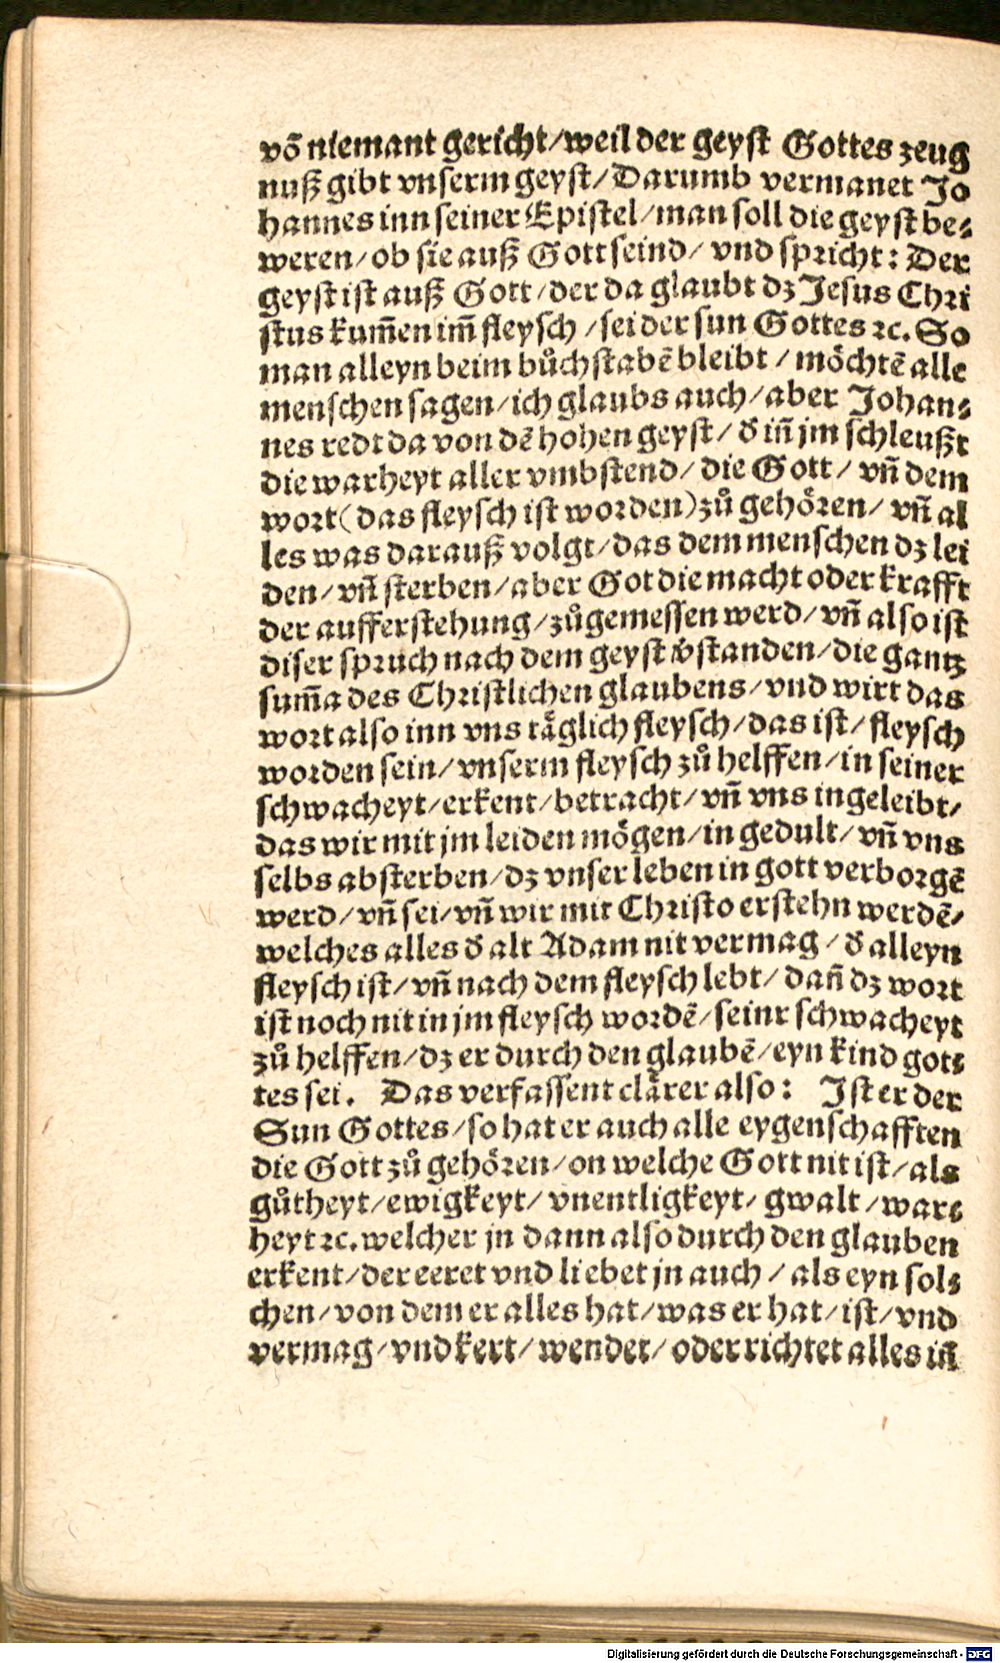 võ niemant gericht/weil der geyst Gottes zeug
nuß gibt vnserm geyst/Darumb vermanet Jo
hannes inn seiner Epistel/man soll die geyst be⸗
weren/ob sie auß Gott seind/ vnd spricht: Der
geyst ist auß Gott/der da glaubt dz Jesus Chri
stus kum̃en im̃ fleysch /sei der sun Gottes ꝛc. So
man alleyn beim bůchstabẽ bleibt / mo̊chtẽ alle
menschen sagen/ich glaubs auch/aber Johan⸗
nes redt da von dẽ hohen geyst/ d̓ iñ jm schleußt
die warheyt aller vmbstend/ die Gott/ vñ dem
wort(das fleysch ist worden)zů gehören/ vñ al
les was darauß volgt/das dem menschen dz lei
den/vñ sterben/aber Got die macht oder krafft
der aufferstehung/zůgemessen werd/vñ also ist
diser spruch nach dem geyst v̓standen/die gantz
sum̃a des Christlichen glaubens/vnd wirt das
wort also inn vns täglich fleysch/das ist/fleysch
worden sein/vnserm fleysch zů helffen/in seiner
schwacheyt/erkent/betracht/vñ vns ingeleibt/
das wir mit jm leiden mögen/in gedult/vñ vns
selbs absterben/dz vnser leben in gott verborgẽ
werd/vñ sei/vñ wir mit Christo erstehn werdẽ/
welches alles d̓ alt Adam nit vermag /d̓ alleyn
fleysch ist/vñ nach dem fleysch lebt/ dañ dz wort
ist noch nit in jm fleysch wordẽ/seinr schwacheyt
zů helffen/dz er durch den glaubẽ/eyn kind got⸗
tes sei. Das verfassent clärer also: Ist er der
Sun Gottes/so hat er auch alle eygenschafften
die Gott zů gehören/on welche Gott nit ist/als
gůtheyt/ewigkeyt/vnentligkeyt/ gwalt/war⸗
heyt ꝛc. welcher jn dann also durch den glauben
erkent/der eeret vnd liebet jn auch / als eyn sol⸗
chen/von dem er alles hat/was er hat/ist/vnd
vermag/vnd kert/wendet/oder richtet alles iñ
Digitalisierung gefördert durch die Deutsche Forschungsgemeinschaft - DFG